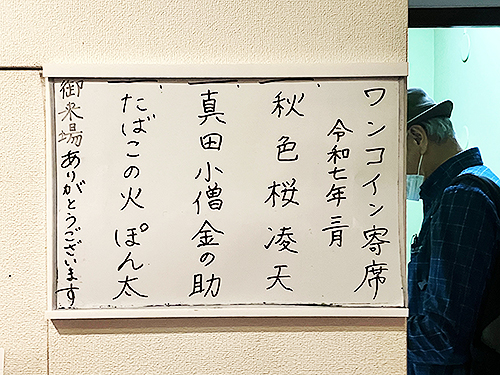 ワンコイン寄席
令和七年 三月
一、秋色桜 凌天
一、真田小僧 金の助
一、たばこの火 ぽん太
御来場ありがとうございます